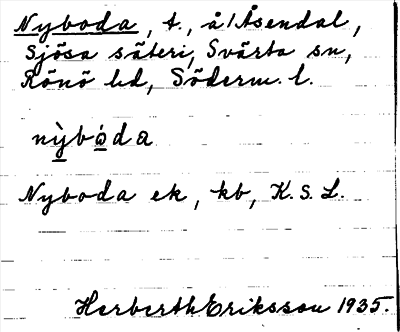 Nyboda, t., å/Åsendal,
Sjösa säteri, Svärta sn,
Rönö hd, Söderm. l.
nỳbó̤da
Nyboda ek, kb, K.S.L.
Herberth Eriksson 1935.